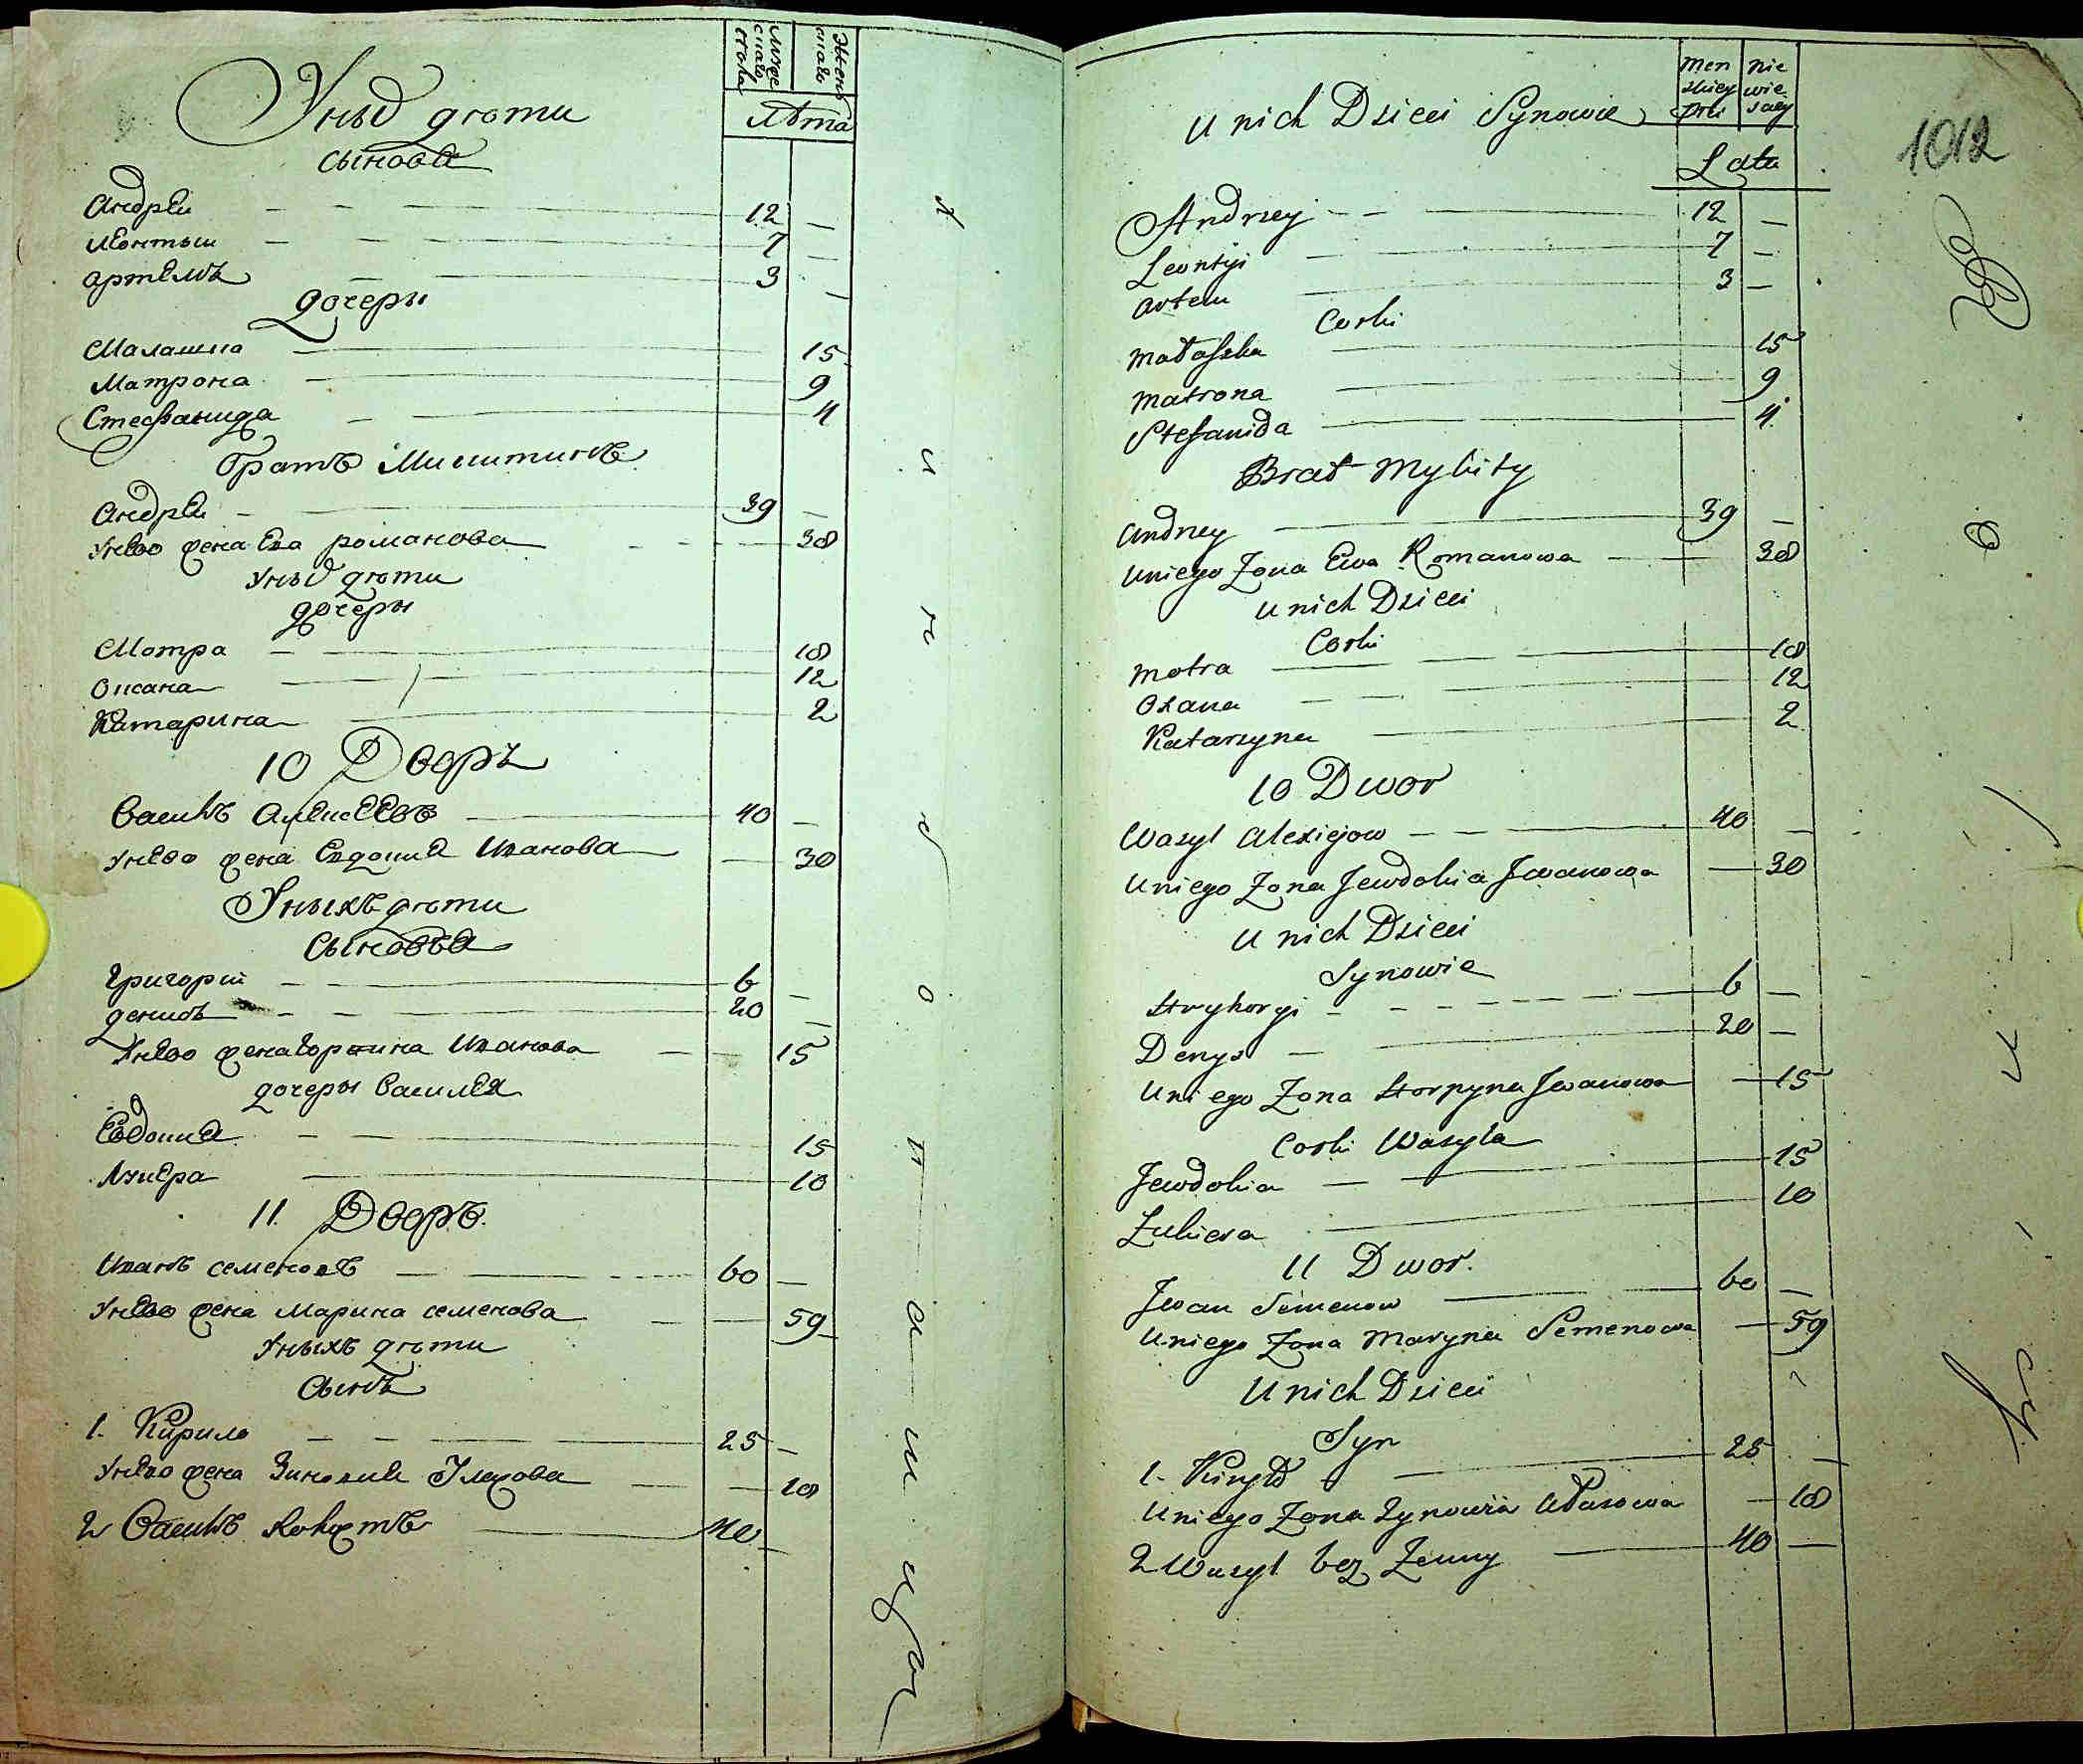 Уныхъ дѣти
сынова
мужескаго пола
женскаго
Лѣта
Андрѣи 12 —
Леонтыи 7 —
Артемъ 3 —
дочеры
Малашка 15
Матрона 9
Стефанида 4
Братъ Микитинъ
Андрѣи 39 —
Унего жена Ева романова 38
Уныхъ дѣти
дочеры
Мотра 18
Оксана 12
Катарина 2
10 Дворъ
Василъ Алексѣевъ 40 —
Унего жена Евдокиа Иванова — 30
Уныхъ дѣти
Сыновѣа
Григорій 6 —
денисъ 20 —
Унего жена Горпина Иванова 15
дочеры Василея
Евдокиа 15
Лукера 10
11 Дворъ
Иванъ семеновъ 60 —
Унего жена марина семенова 59
Уныхъ дѣти
Сынъ
1. Кирило 25 —
Унего жена Зиновиа Уласова 18
2 Василъ 40 —
U nich Dzieci Synowie
men skiey płci
nie wie sciey
Lata
1012
Andrzey 12 —
Leontyi 7 —
Artem 3 —
Corki
Małaszka 15
Matrona 9
Stefanida 4
Brat Mykity
Andrzey 39 —
U niego Zona Ewa Romanowa 38
U nich Dzieci
Corki
Motra 18
Oxana 12
Katarzyna 2
10 Dwor
Wasyl Alexiejow 40 —
U niego Zona Jewdokia Jwanowa 30
U nich Dzieci
Synowie
Hryhoryi 6 —
Denys 20 —
U niego Zona Horpyna Jwanowa 15
Corki Wasyla
Jewdokia 15
Łukiera 10
11 Dwor.
Jwan Semenow 60 —
U niego Zona Maryna Semenowa 59
U nich Dzieci
Syn
1. Kiryło 25 —
U niego Zona Zynowia Ułasowa 18
2 Wasyl bez Zenny 40 —